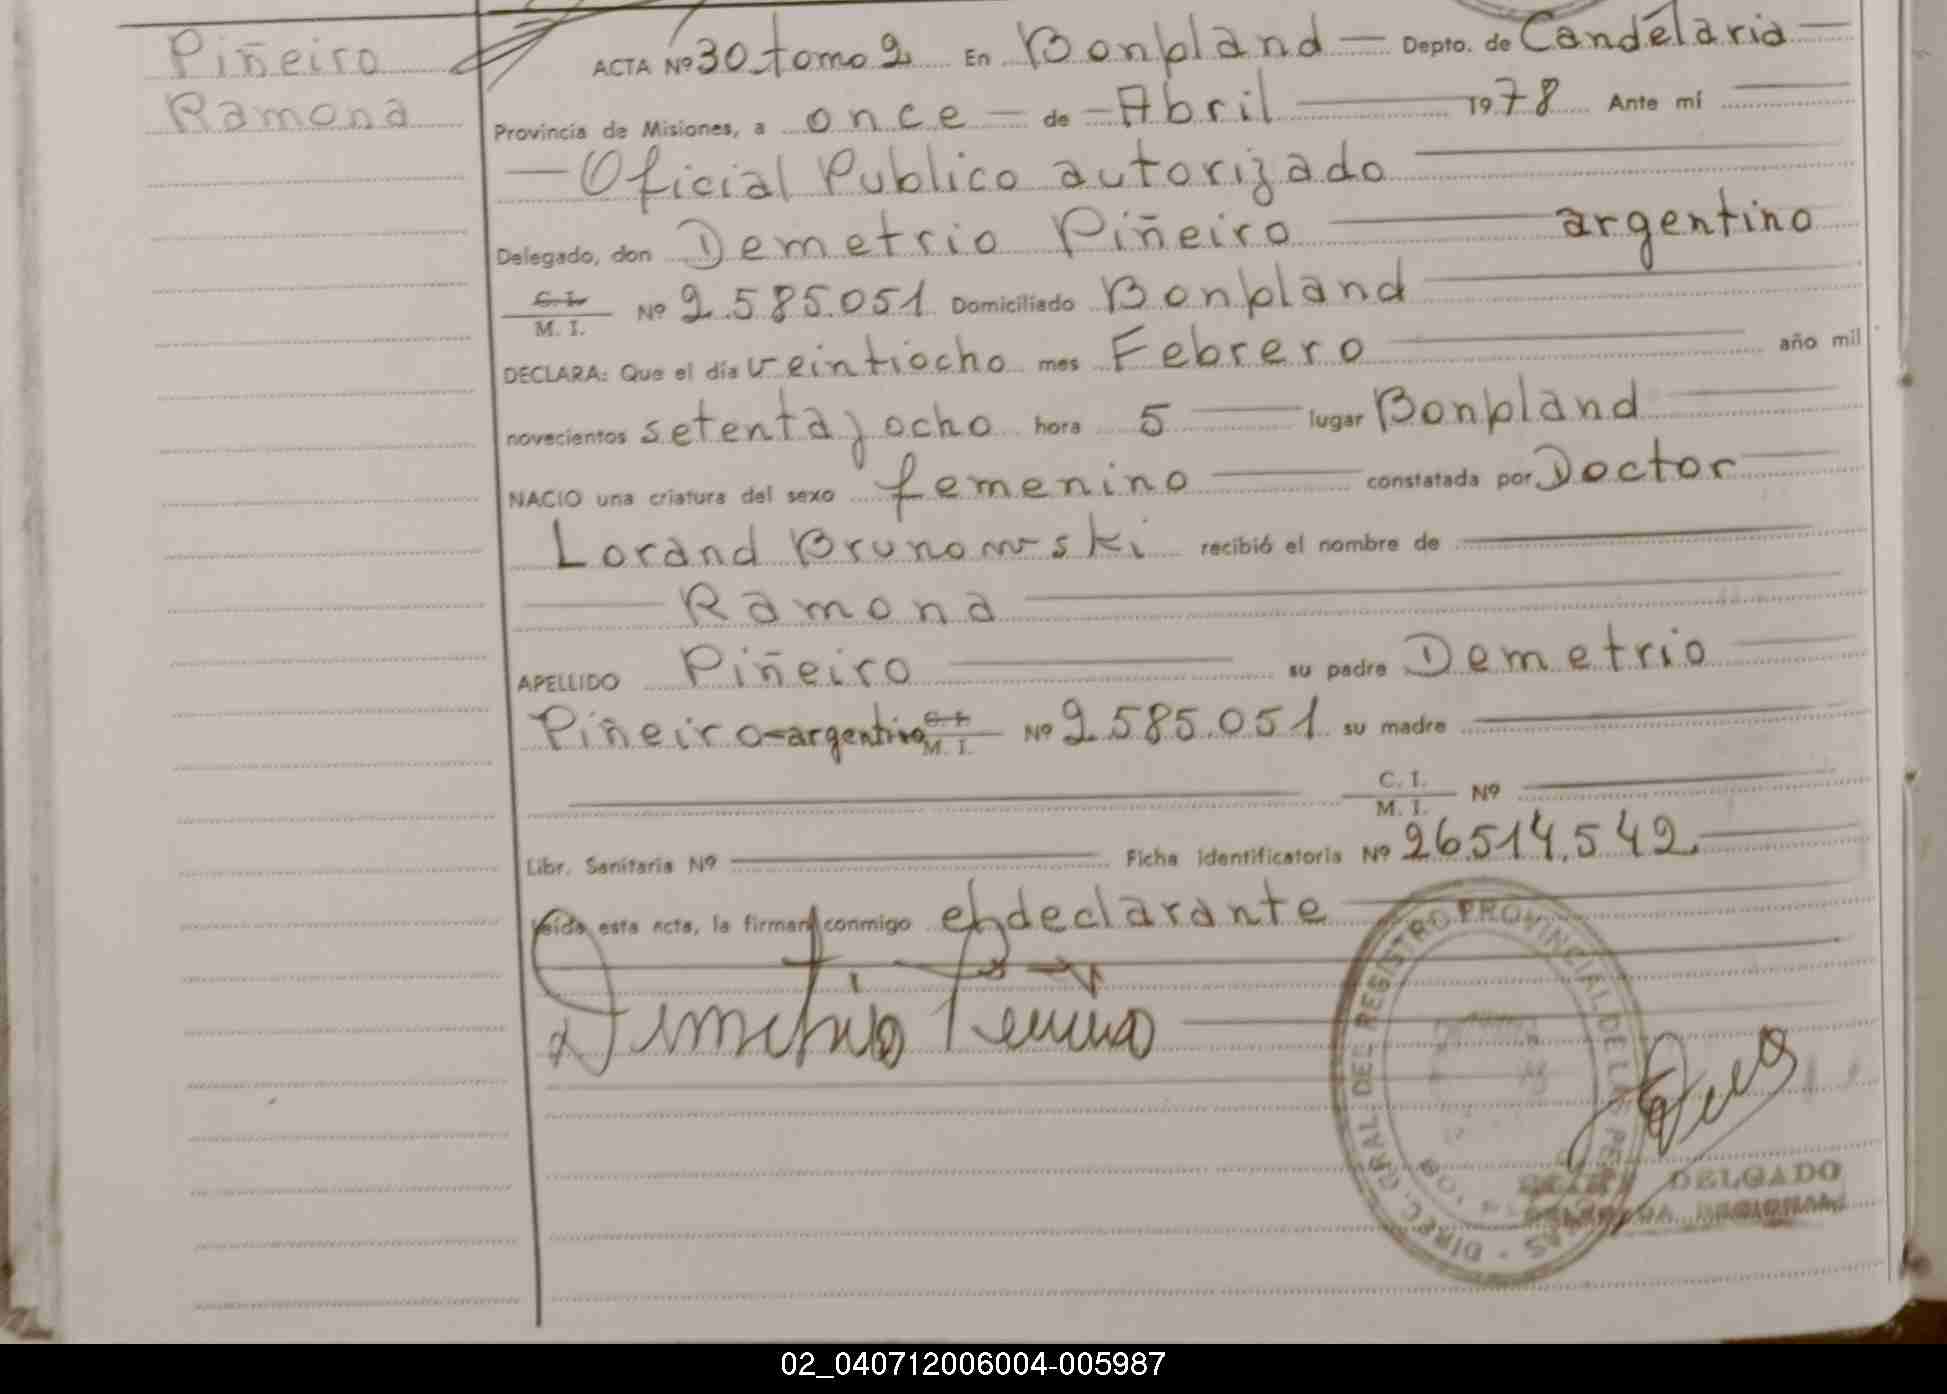 Piñeiro
Ramona
ACTA Nº 30 tomo 2 En Bonpland — Depto. de Candelaria —
Provincia de Misiones, a once — de — Abril — 1978 Ante mí
— Oficial Publico autorizado
Delegado, don Demetrio Piñeiro — argentino
C. I. / M. I. Nº 2.585.051 Domiciliado Bonpland
DECLARA: Que el día veintiocho mes Febrero — año mil
novecientos setenta y ocho hora 5 — lugar Bonpland
NACIO una criatura del sexo femenino — constatada por Doctor
Lorand Brunowski recibió el nombre de —
— Ramona —
APELLIDO Piñeiro — su padre Demetrio
Piñeiro - argentino C. I. / M. I. Nº 2.585.051 su madre —
C. I. / M. I. Nº —
Libr. Sanitaria Nº — Ficha identificatoria Nº 26.514.542
Leída esta acta, la firman conmigo el declarante
Demetrio Piñeiro
DIREC. GRAL DEL REGISTRO PROVINCIAL DE LAS PERSONAS
DELGADO
02_040712006004-005987